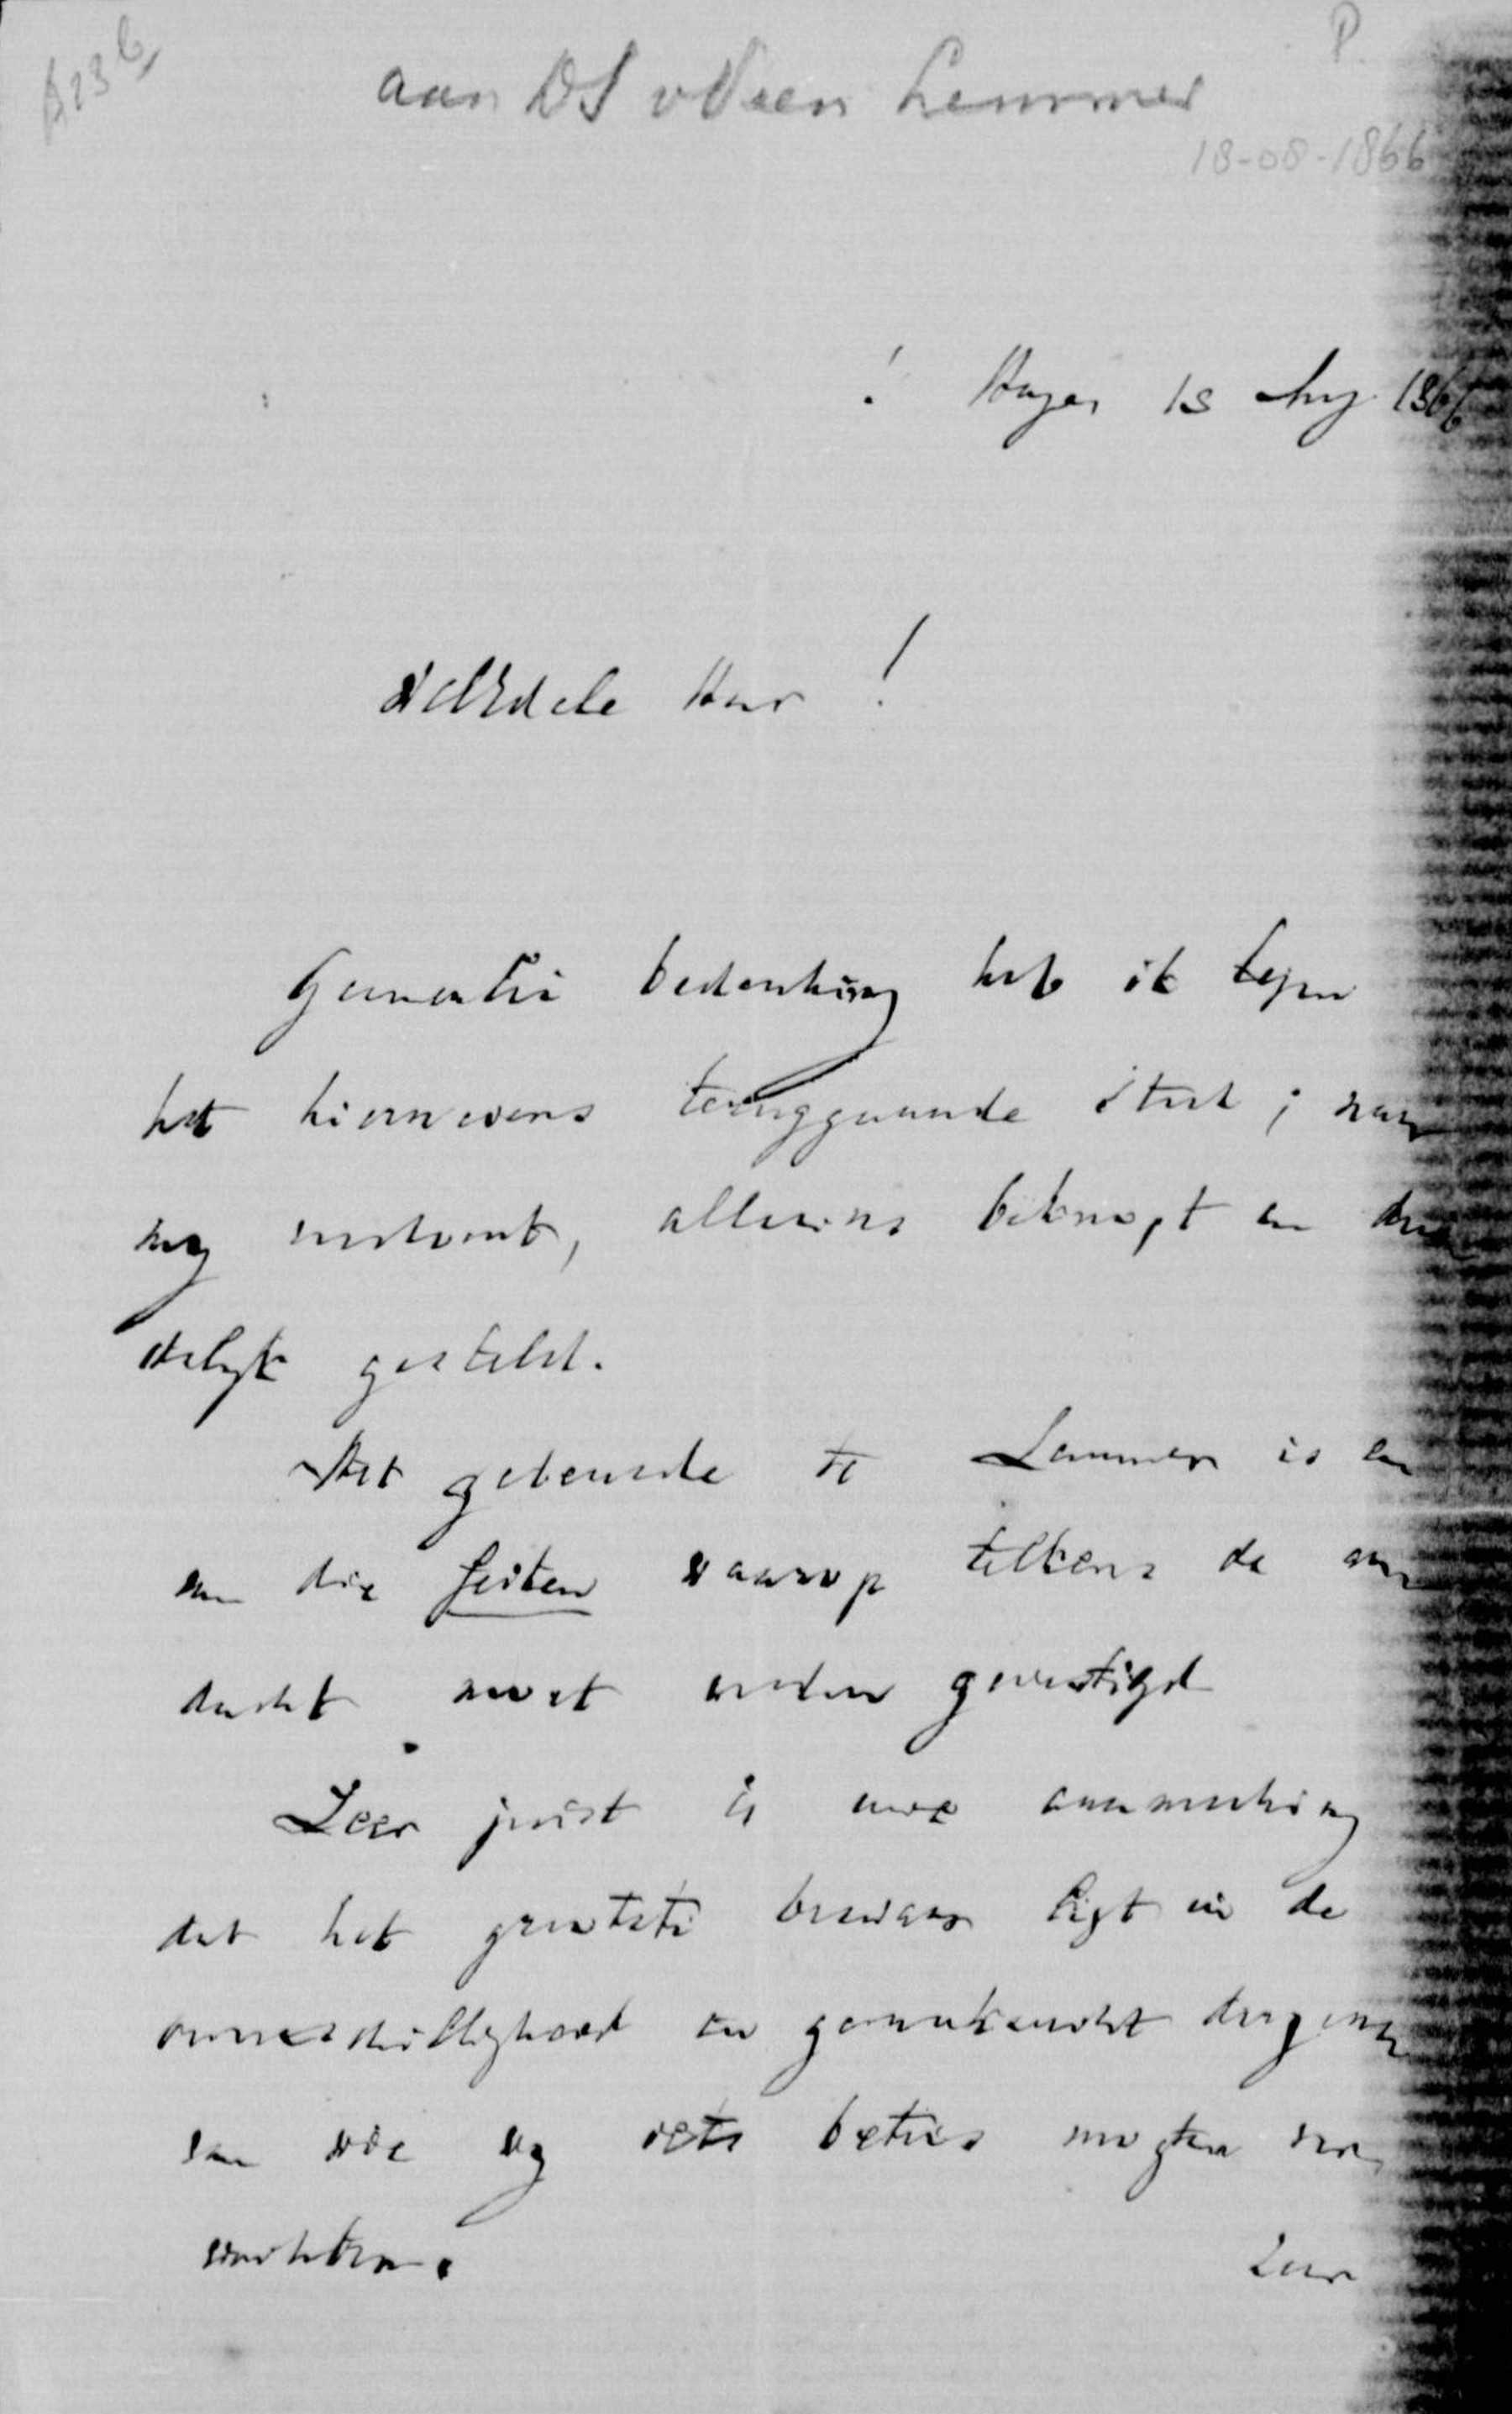 B23b
P.
aan DS vVeen Lemmer
18-08-1866
! Hage 18 Aug. 1866
WelEdele Heer!
Geenerlei bedenking heb ik tegen
het hiernevens teruggaande stuk; naar
my voorkomt, alleszins beknopt en dui
delyk gesteld.
Het gebeurde te Lemmer is een
van die feiten waarop telkens de aan
dacht moet worden gevestigd
Zeer juist is uwe aanmerking
dat het grootste bezwaar ligt in de
onverschilligheid en gemakzucht dergenen
van wie wy iets beters mogten ver
wachten.
Zeer